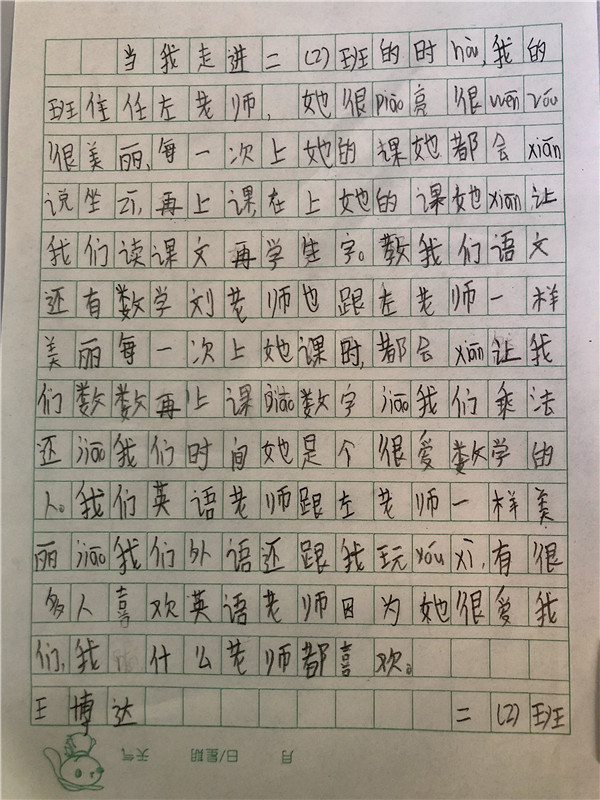 当我走进二(2)班的时hòu,我的
班住任左老师,她很piào亮很wēn róu
很美丽,每一次上她的课她都会xiān
说坐zī,再上课,在上她的课她xiān让
我们读课文再学生字。教我们语文
还有数学刘老师也跟左老师一样
美丽每一次上她课时,都会xiān让我
们数数再上课jiāo数字jiāo我们乘法
还jiāo我们时间她是个很爱数学的
人。我们英语老师跟左老师一样美
丽jiāo我们外语还跟我玩yóu xì,有很
多人喜欢英语老师因为她很爱我
们,我什么老师都喜欢。
王博达 二(2)班
月 日/星期 天气